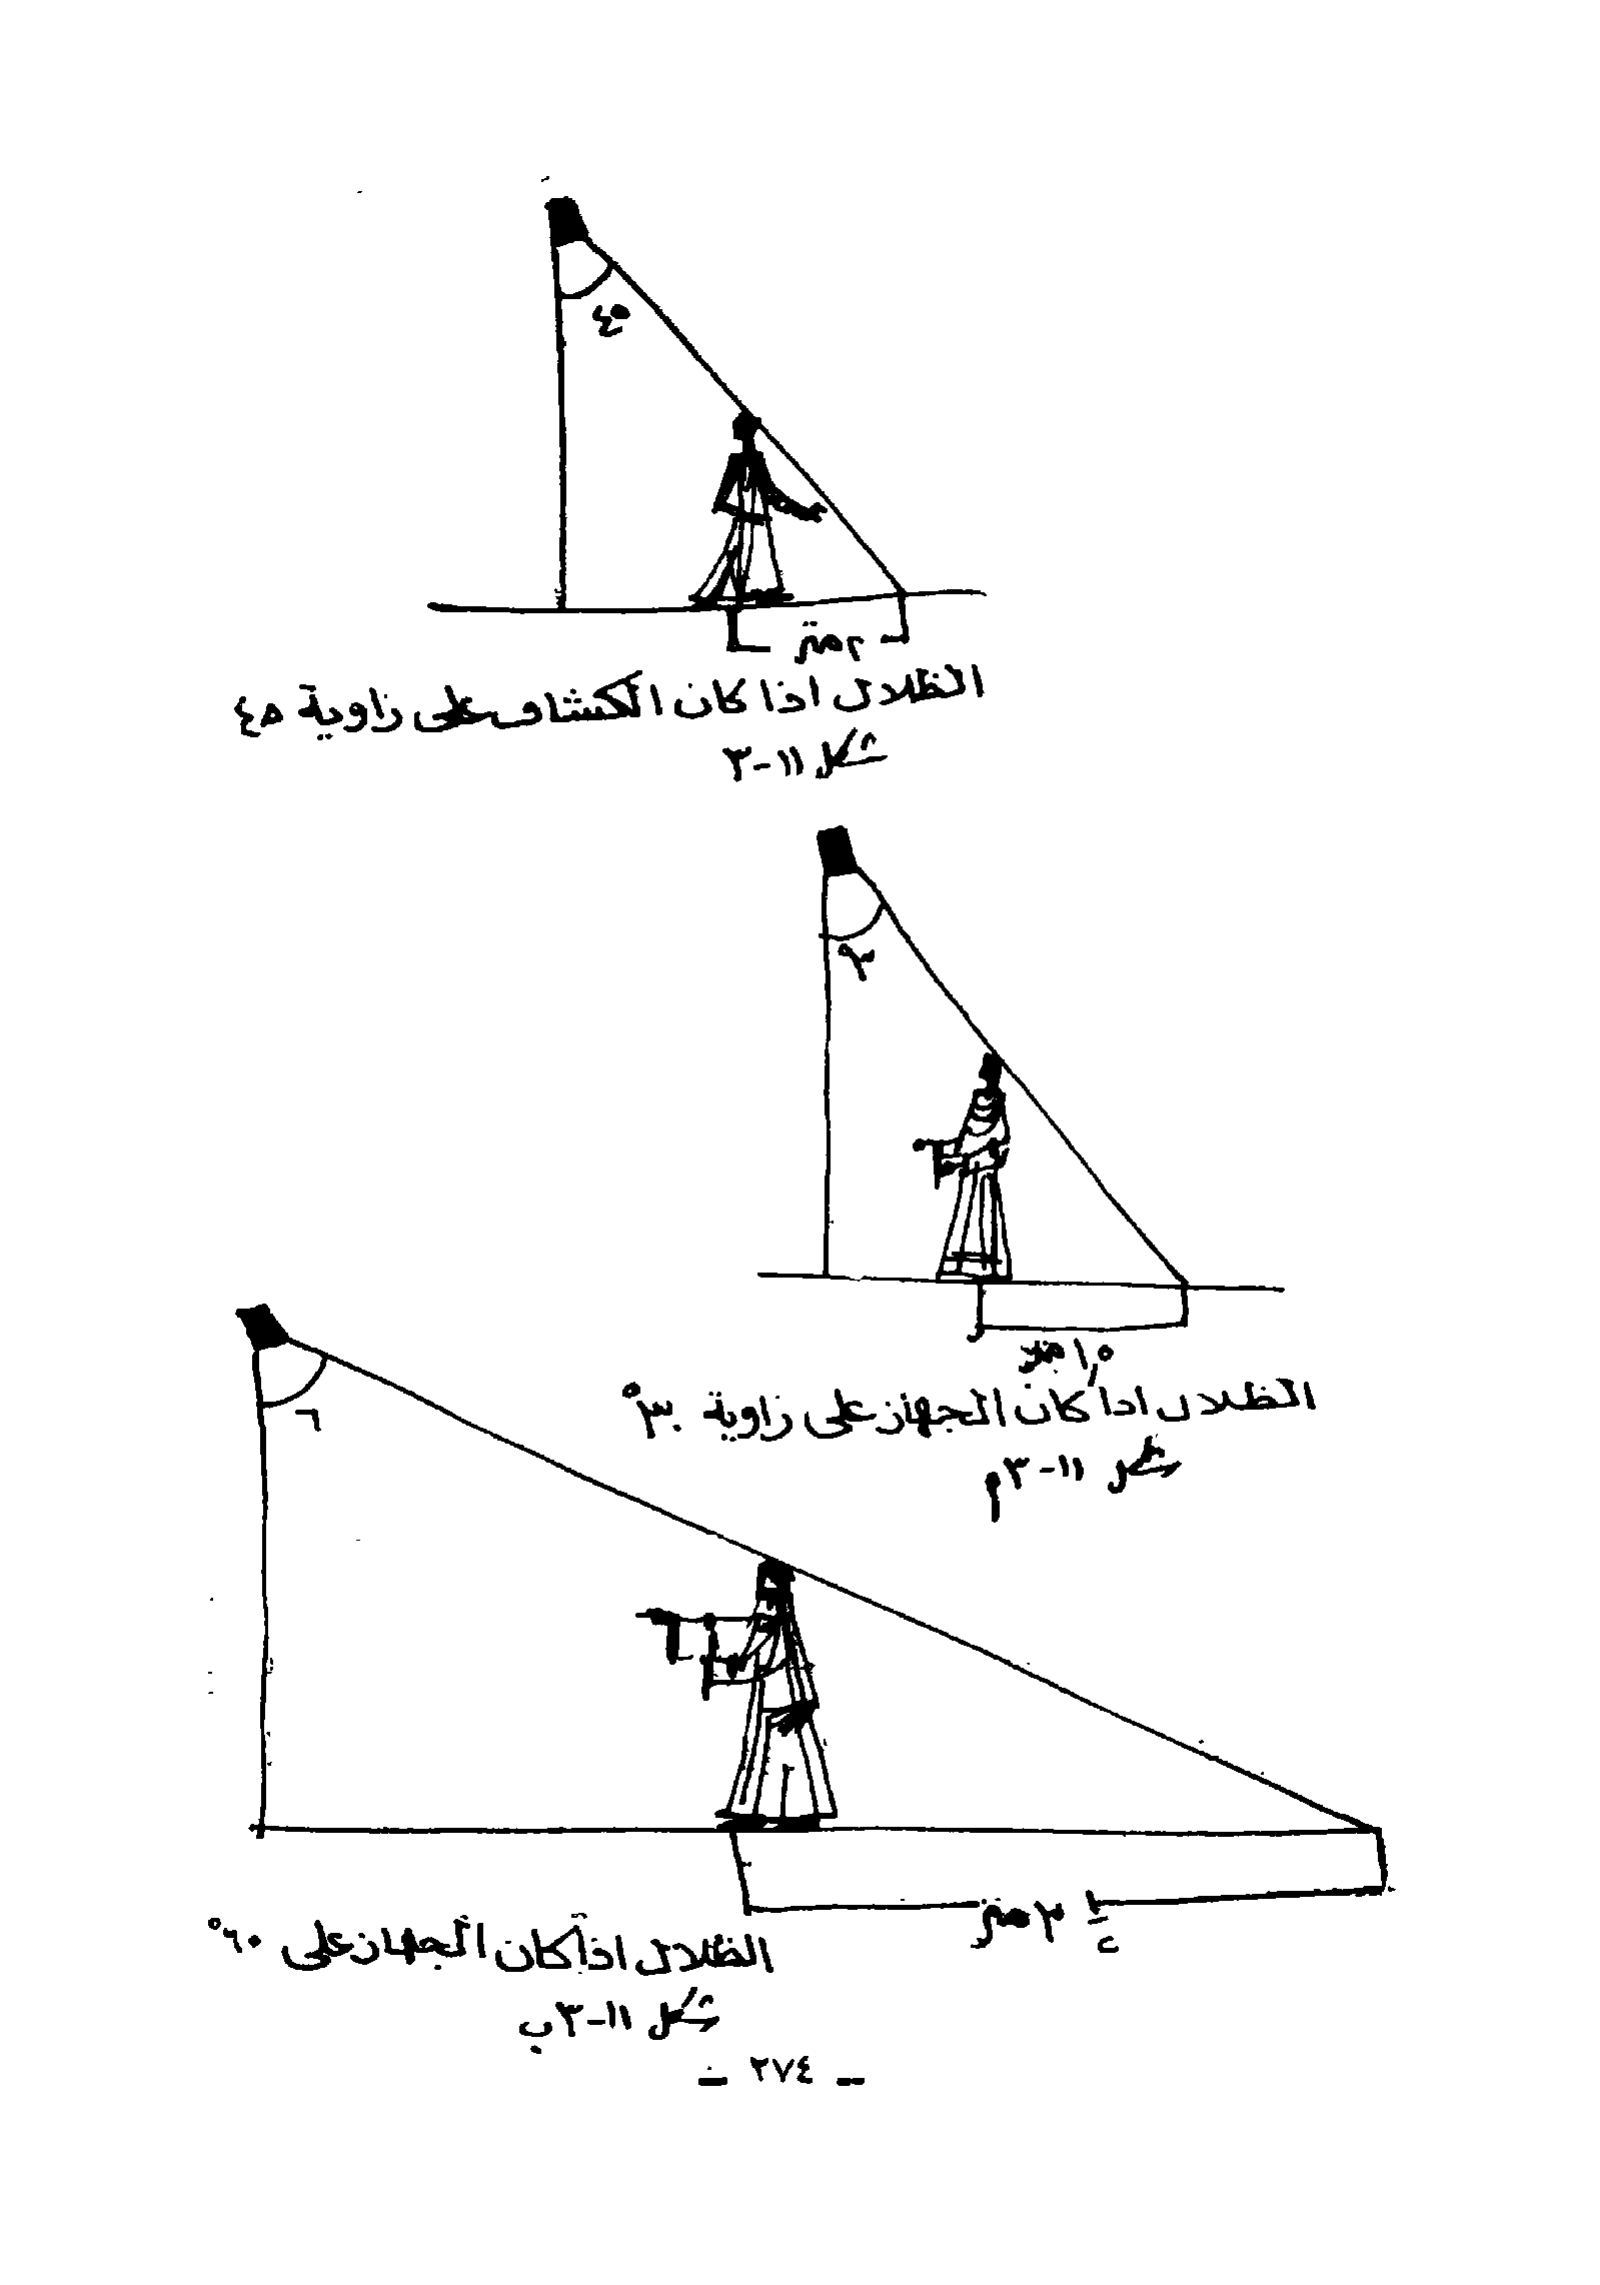 ٤٥
٢ متر
الظلال اذا كان الكشاف على زاوية ٤٥
شكل ١١-٣
٣٠
١,٥ متر
الظلال اذا كان الجهاز على زاوية ٣٠°
شكل ١١-٣م
٦٠
٣ ١/٢ متر
الظلال اذا كان الجهاز على ٦٠°
شكل ١١-٣ب
- ٢٧٤ -